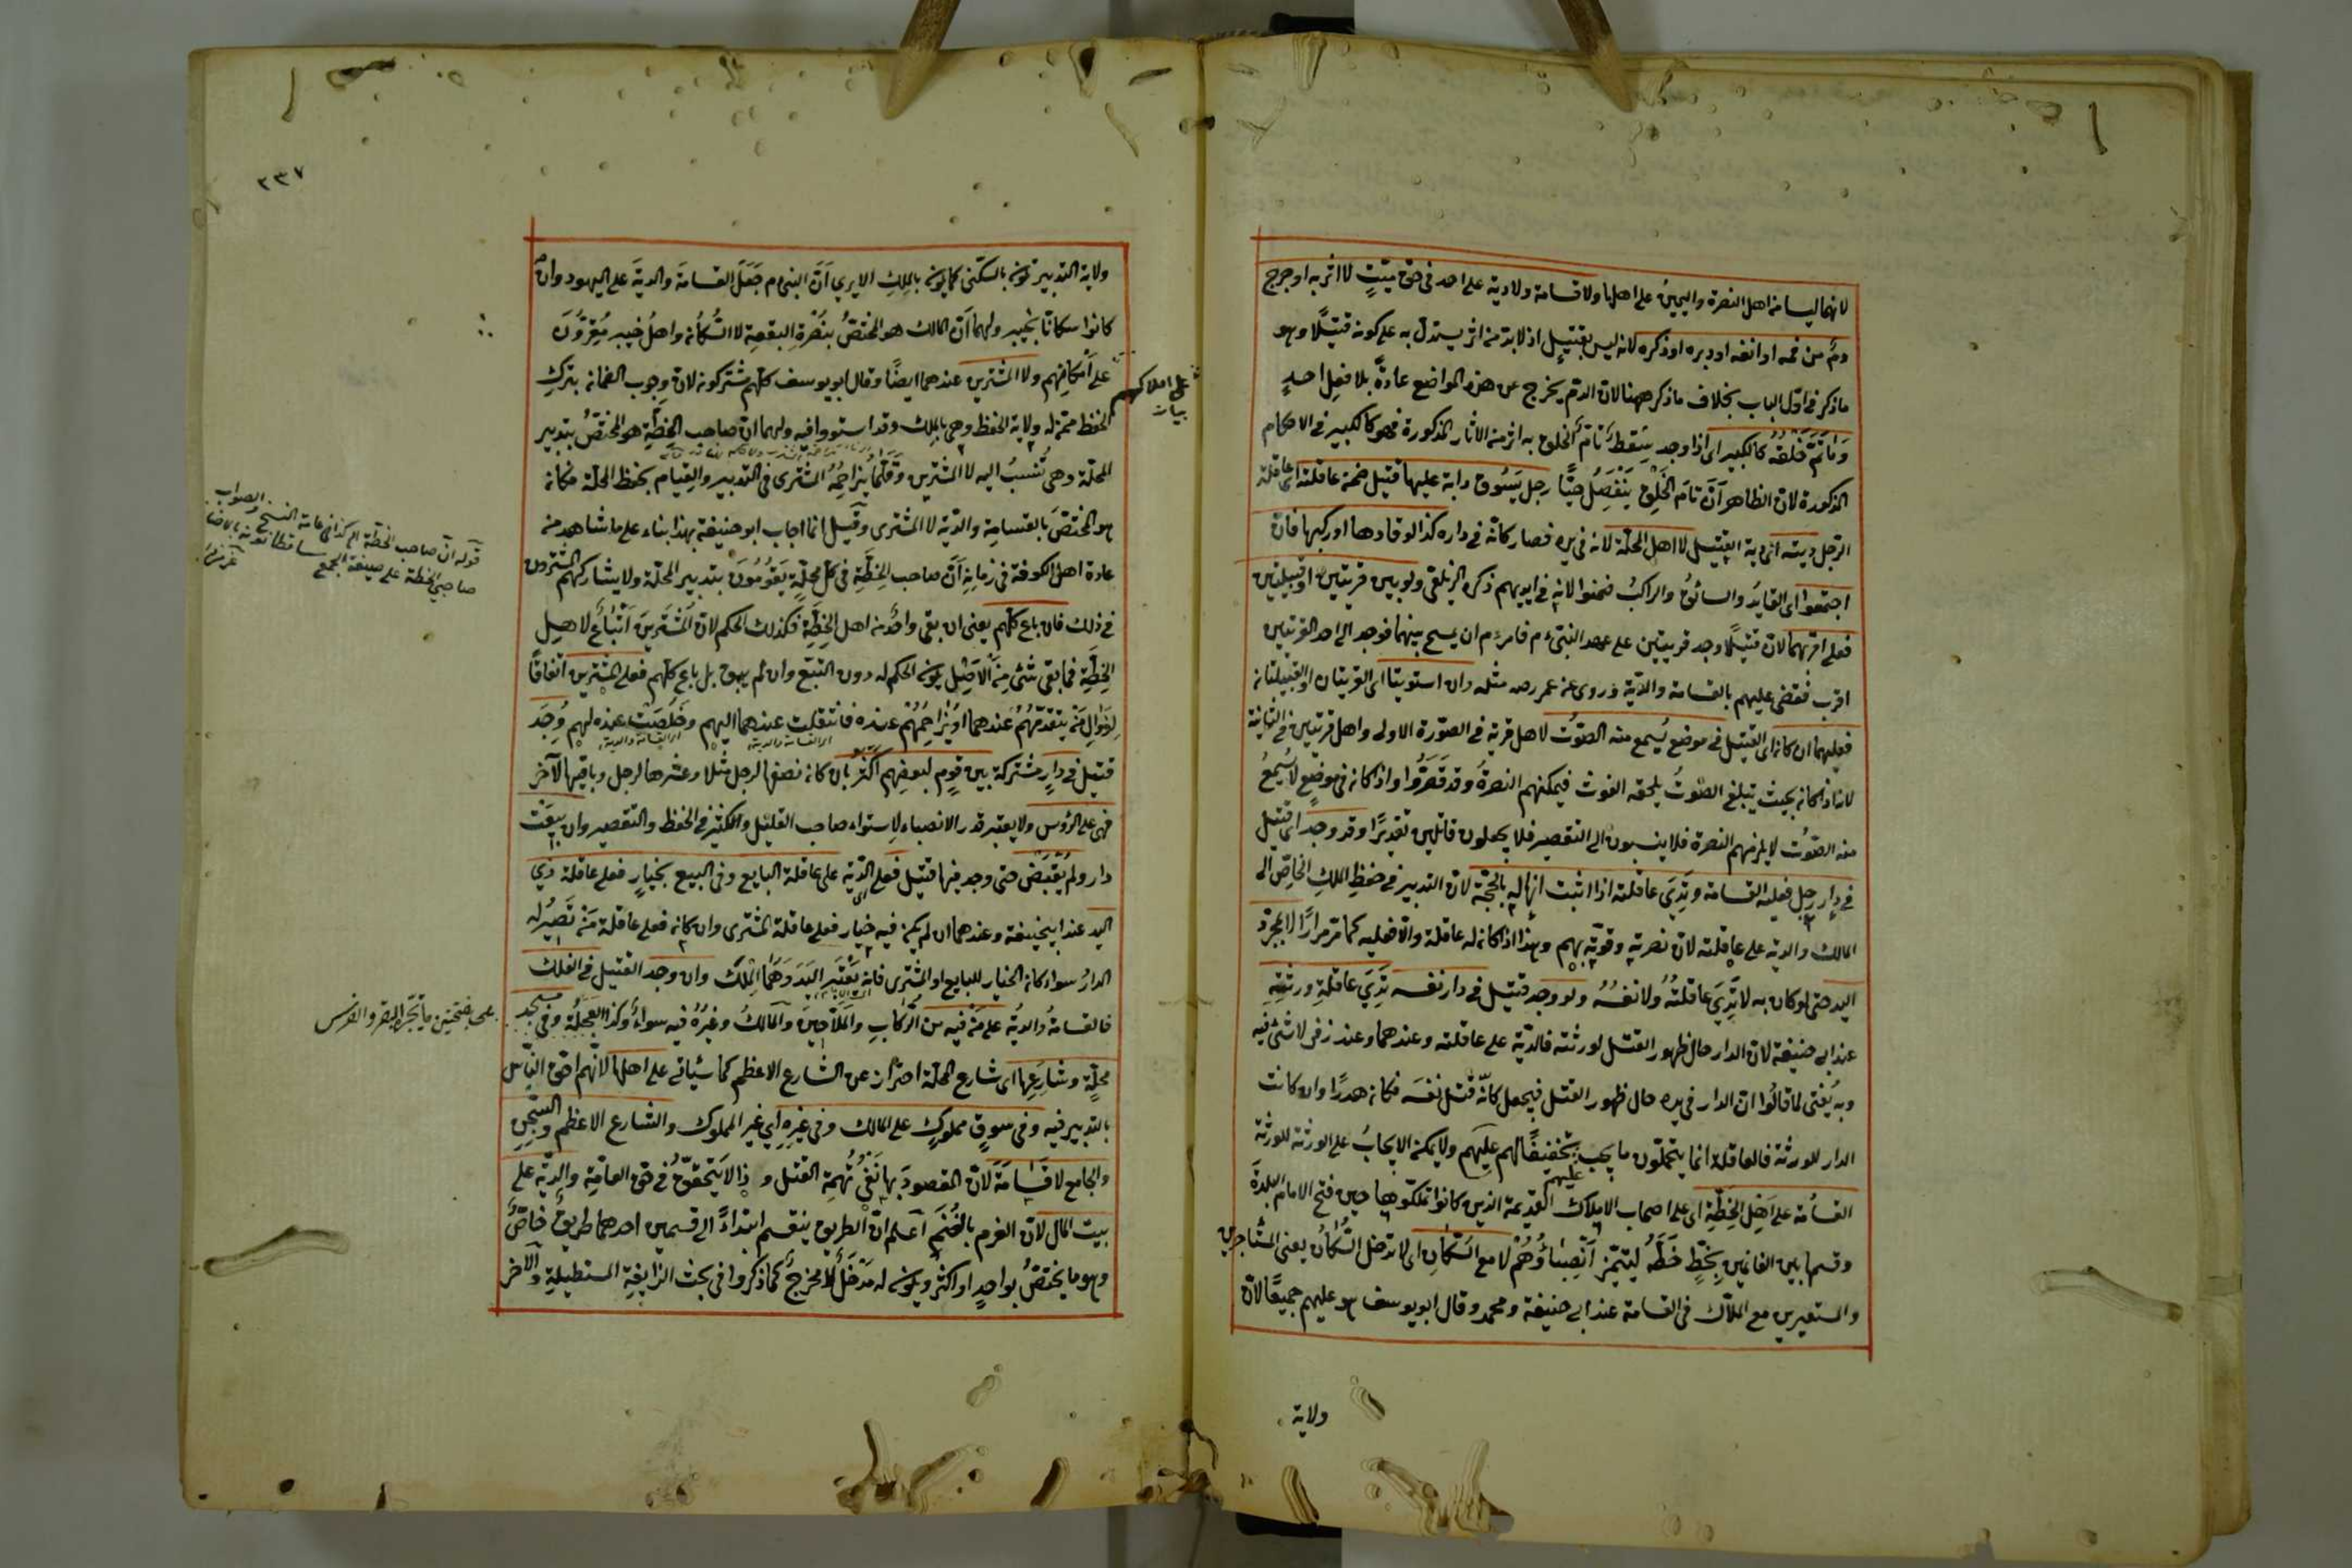 لانهما ليسا من اهل النصرة واليمين على اهلها ولا قسامة ولا دية على احد فى حق ميّت لا اثر به او جرح
دم من فمه او انفه او دبره او ذكره لانه ليس بقتيل اذ لا بد من اثر يستدل به على كونه قتيلا وهو
ما ذكر فى اول الباب بخلاف ما ذكر ههنا لان الدم يخرج عن هذه المواضع عادة بلا فعل احد
وما تم خلقه كالكبير اى اذا وجد سقط تام الخلق به اثر من الاثار المذكورة فهو كالكبير فى الاحكام
المذكورة لان الظاهر ان تام الخلق ينفصل حيا رجل يسوق دابة عليها قتيل ضمن عاقلته اى عاقلة
الرجل ديته اى دية القتيل لا اهل المحلة لانه فى يده فصار كانه فى داره كذا لو قادها او ركبها فان
اجتمعوا اى القائد والسائق والراكب ضمنوا لانه فى ايديهم ذكره الزيلعى ولو بين قريتين او قبيلتين
فعلى اقربهما لان قتيلا وجد قريتين على عهد النبى عم فامر عم ان يمسح بينهما فوجد الى احد القريتين
اقرب فقضى عليهم بالقسامة والدية وروى عن عمر رضه مثله وان استويتا اى القريتان او القبيلتان
فعليهما ان كان اى القتيل فى موضع يسمع منه الصوت لاهل قرية فى الصورة الاولى واهل قريتين فى الثانية
لانه اذا كان بحيث يبلغ الصوت يلحقه الغوث فيمكنهم النصرة وقد قصروا واذا كان فى موضع لا يسمع
منه الصوت لا يلزمهم النصرة فلا ينسبون الى التقصير فلا يجعلون قاتلين تقديرا وقد وجد اى قتيل
فى دار رجل فعليه القسامة وتدى عاقلته اذا اثبت انها له بالحجة لان التدبير فى حفظ الملك الخاص الى
المالك والدية على عاقلته لان نصرته وقوته بهم وهذا اذا كان له عاقلة والا فعليه كما مر مرارا لا بمجرد
اليد حتى لو كان به لا تدى عاقلته ولا نفسه ولو وجد قتيل فى دار نفسه تدى عاقلة ورثته
عند ابى حنيفة لان الدار حال ظهور القتل لورثته فالدية على عاقلته وعندهما وعند زفر لا شئ فيه
وبه يفتى لما قالوا ان الدار فى يده حال ظهور القتل فيجعل كانه قتل نفسه فكان هدرا وان كانت
الدار للورثة فالعاقلة انما يتحملون ما يجب تخفيفا لهم عليهم ولا يمكن الايجاب على الورثة للورثة
القسامة على اهل الخطة اى على اصحاب الاملاك القديمة الذين كانوا تملكوها حين فتح الامام البلدة
عليهم
وقسمها بين الغانمين بخط خطه ليتميز انصباؤهم لا مع السكان اى لا تدخل السكان يعنى المستاجرين
والمستعيرين مع الملاك فى القسامة عند ابى حنيفة ومحمد وقال ابو يوسف هو عليهم جميعا لان
ولاية
٢٣٧
ولاية التدبير تكون بالسكنى كما يكون بالملك الا يرى ان النبى عم جعل القسامة والدية على اليهود وان
كانوا سكانا بخيبر ولهما ان المالك هو المختص بنصرة البقعة لا السكان واهل خيبر مقرون
على املاكهم ولا المشترين عندهما ايضا وقال ابو يوسف كلهم مشتركون لان وجوب الضمان بترك
على املاكهم
الحفظ ممن له ولاية الحفظ وهى بالملك وقد استووا فيه ولهما ان صاحب الخطة هو المختص بتدبير
المحلة وهى تنسب اليه لا المشترين وقلما يزاحمه المشترى فى التدبير والقيام بحفظ المحلة فكان
هو المختص بالقسامة والدية لا المشترى وقيل انما اجاب ابو حنيفة بهذا بناء على ما شاهد من
قوله ان صاحب الخطة كذا فى عامة النسخ والصواب
صاحبى الخطة على صيغة الجمع
عادة اهل الكوفة فى زمانه ان صاحب الخطة فى كل محلة يقومون بتدبير المحلة ولا يشاركهم المشترون
فى ذلك فان باع كلهم يعنى ان بقى واحد من اهل الخطة فكذلك الحكم لان المشترين اتباع لاهل
الخطة فما بقى شئ من الاصل يكون الحكم له دون التبع وان لم يبق بل باع كلهم فعلى المشترين اتفاقا
لزوال من يتقدمهم عندهما او يزاحمهم عنده فانتقلت عندهما اليهم وخلصت عنده لهم وجد
قتيل فى دار مشتركة بين قوم لبعضهم اكثر بان كان نصفها لرجل مثلا وعشرها لرجل وباقيها لآخر
فهى على الرؤس ولا يعتبر قدر الانصباء لاستواء صاحب القليل والكثير فى الحفظ والتقصير وان بيعت
دار ولم تقبض حتى وجد فيها قتيل فعلى الدية على عاقلة البايع وفى البيع بخيار فعلى عاقلة ذى
اليد عند ابيحنيفة وعندهما ان لم يكن فيه خيار فعلى عاقلة المشترى وان كان فعلى عاقلة من تصير له
الدار سواء كان الخيار للبايع او المشترى فانه يعتبر اليد وهما الملك وان وجد القتيل فى الفلك
فالقسامة والدية على من فيه من الركاب والملاحين والمالك وغيره فيه سواء وكذا العجلة وفى مسجد
بفتحتين ما تجره البقر والفرس
محلة وشارعها اى شارع المحلة احتراز عن الشارع الاعظم كما سياتى على اهلها لانهم احق الناس
بالتدبير فيه وفى سوق مملوك على المالك وفى غيره اى غير المملوك والشارع الاعظم والسجن
والجامع لا قسامة لان المقصود بها نفى تهمة القتل وذا لا يتحقق فى حق العامة والدية على
بيت المال لان الغرم بالغنم اعلم ان الطريق ينقسم ابتداء الى قسمين احدهما طريق خاص
وهو ما يختص بواحد او اكثر ويكون له مدخل لا مخرج كما ذكروا فى بحث الزايغة المستطيلة والآخر